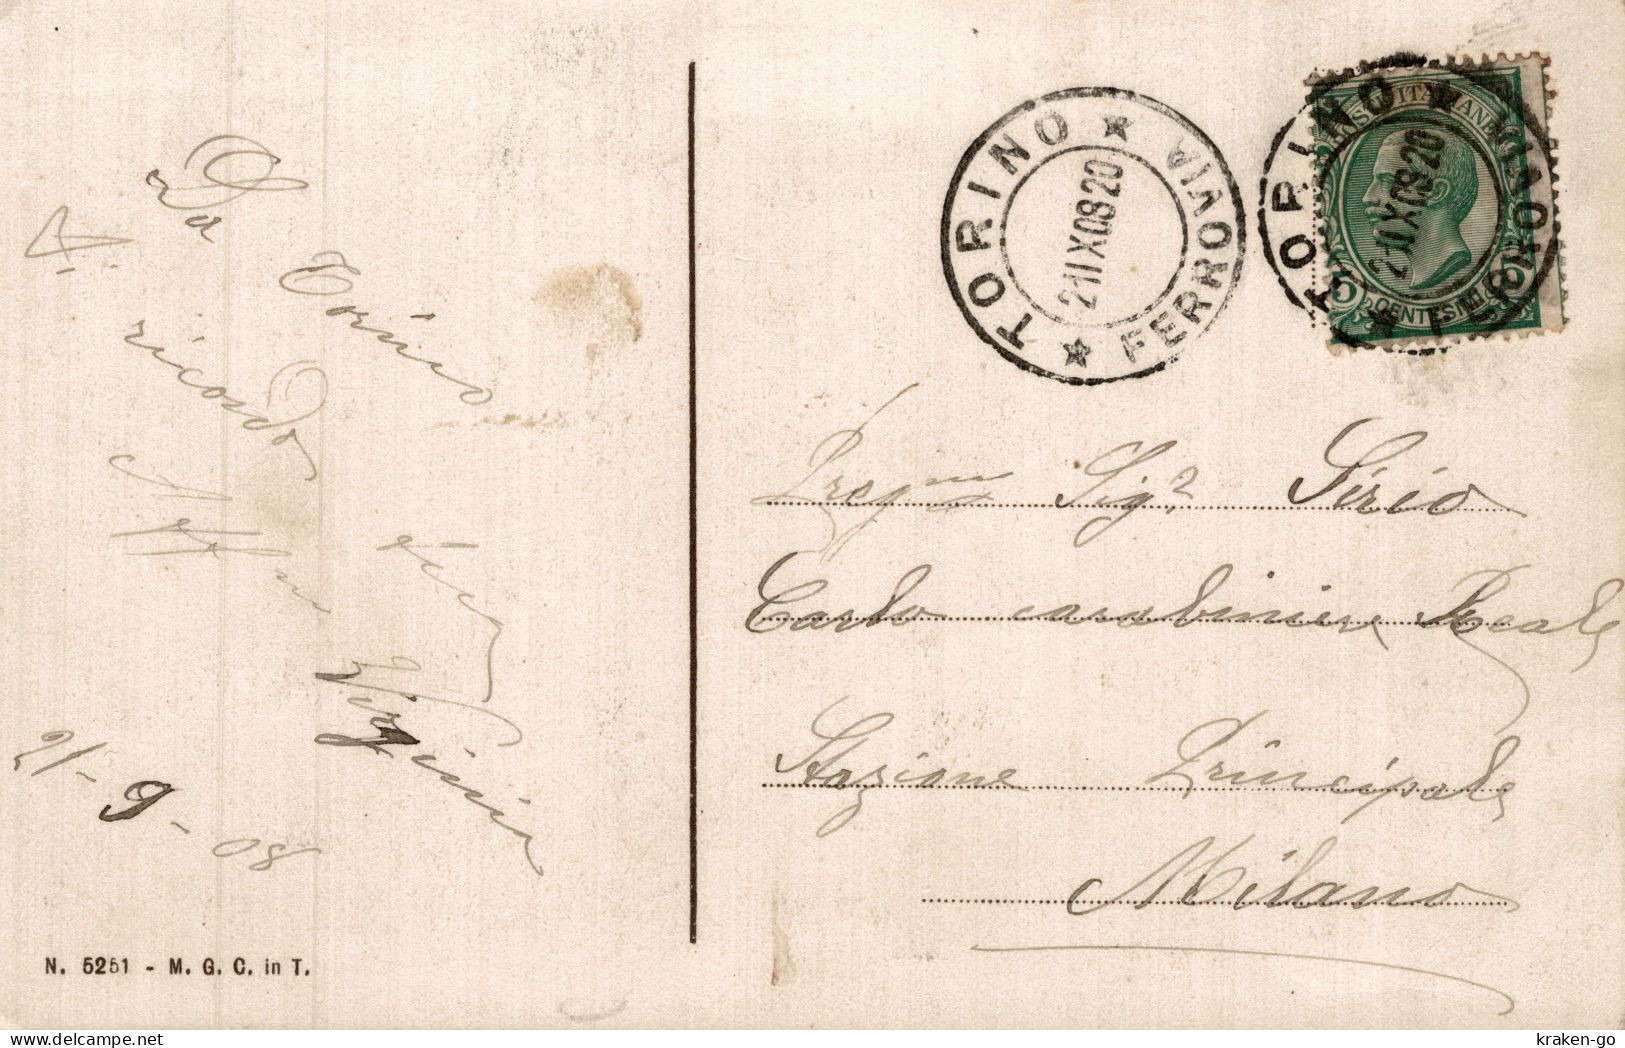 Da Torino
V. ricordo
Virginia
21-9-08
N. 5251 - M. G. C. in T.
TORINO
FERROVIA
21 IX 08 20
TORINO
FERROVIA
21 IX 08 20
POSTE ITALIANE
CENTESIMI
5 5
Preg.ma Sig.r Sirio
Carlo carabiniere Reale
Stazione Principale
Milano
kraken-go